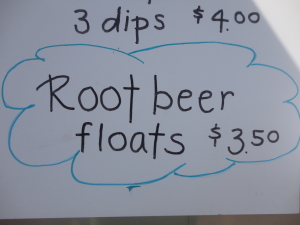 3 dips $4.00
Root beer
floats $3.50